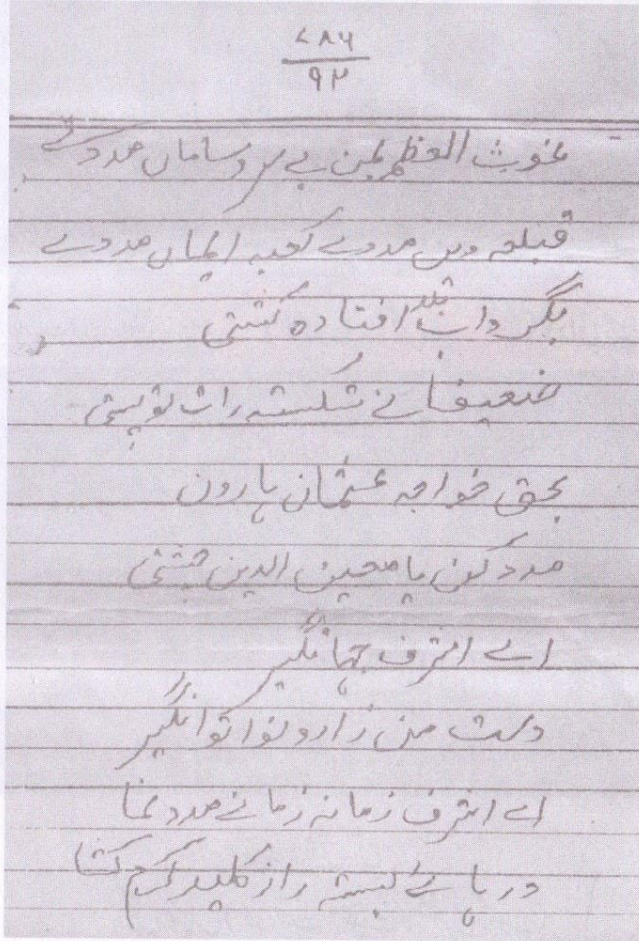 ۷۸۶
۹۲
غوث العظم بمن بے سر و ساماں مددے
قبلہ دیں مددے کعبہ ایماں مددے
بگرداب بلا افتادہ کشتی
ضعیفانے شکستہ را تو پشتی
بحق خواجہ عثمان ہارون
مدد کن یا معین الدین چشتی
اے اشرف جہانگیر
دست من زار و نوا توانگیر
اے اشرف زمانہ زمانے مدد نما
در ہائے بستہ را ز کلید کرم کشا